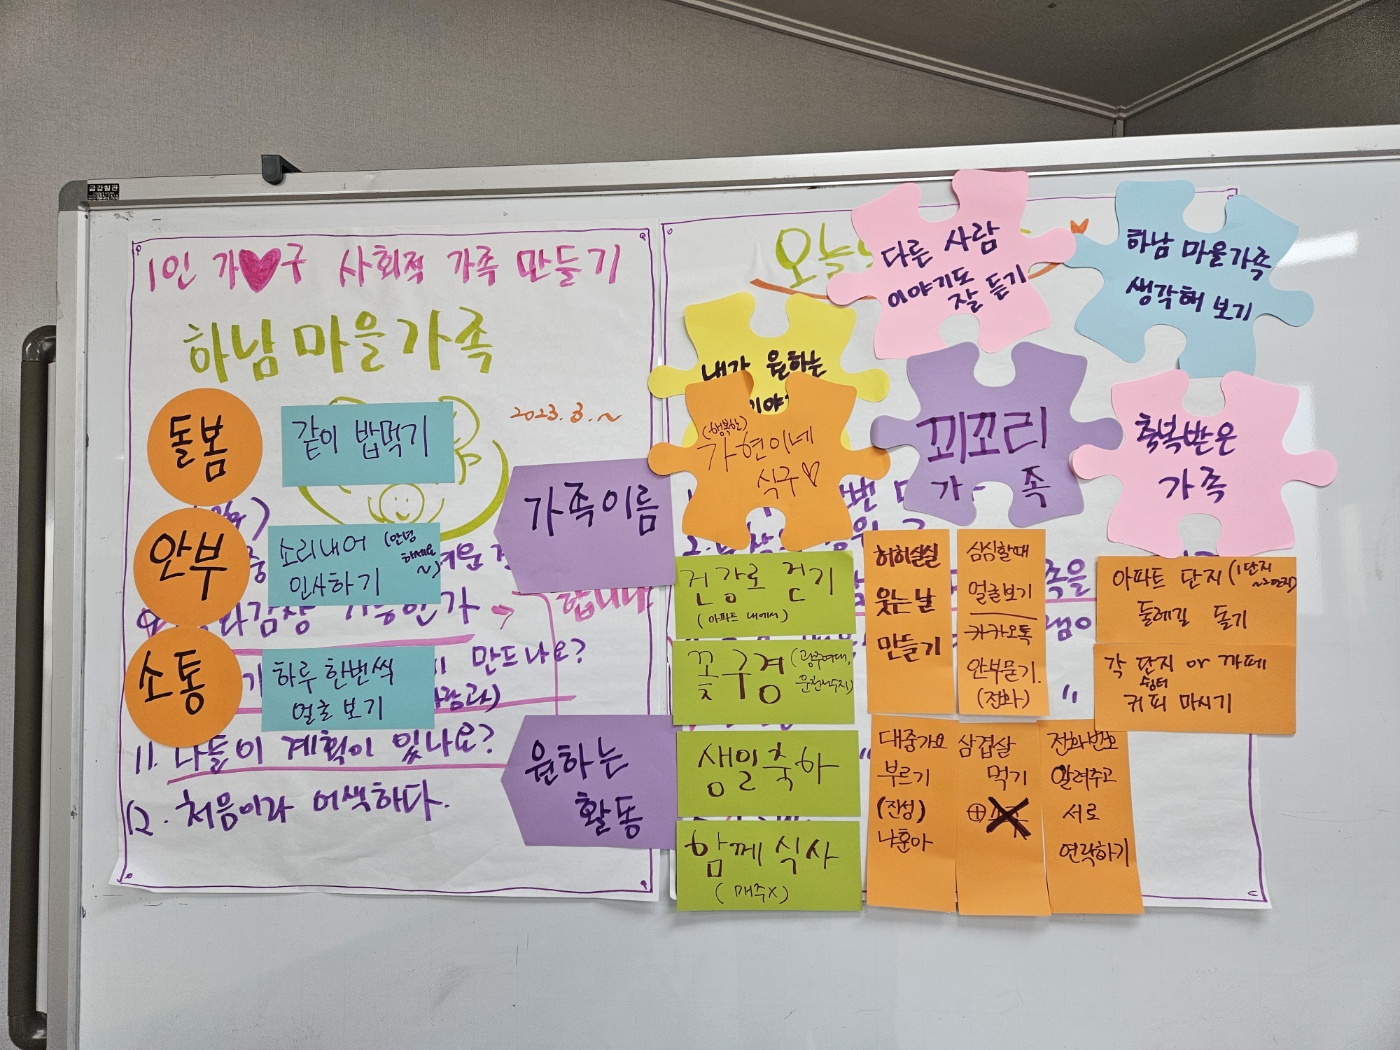 1인 가♥구 사회적 가족 만들기
하남 마을가족
2023. 3. ~
돌봄
같이 밥먹기
안부
소리내어 (안녕
하세요
~)
인사하기
소통
하루 한번씩
얼굴 보기
만드나요?
11. 나들이 계획이 있나요?
12. 처음이라 어색하다.
합니다
가족이름
원하는
활동
오늘
다른 사람
이야기도
잘 듣기
하남 마을가족
생각해 보기
내가 원하는
(행복한)
가현이네
식구♡
꾀꼬리
가족
축복받은
가족
건강로 걷기
(아파트 내에서)
꽃구경
생일축하
함께 식사
(매주X)
허허실실
웃는 날
만들기
심심할때
얼굴보기
카카오톡
안부묻기.
(전화)
아파트 단지 (1단지
둘레길 돌기
각 단지 or 까페
쉼터
커피 마시기
대중가요
부르기
(진성)
나훈아
삼겹살
먹기
전화번호
알려주고
서로
연락하기